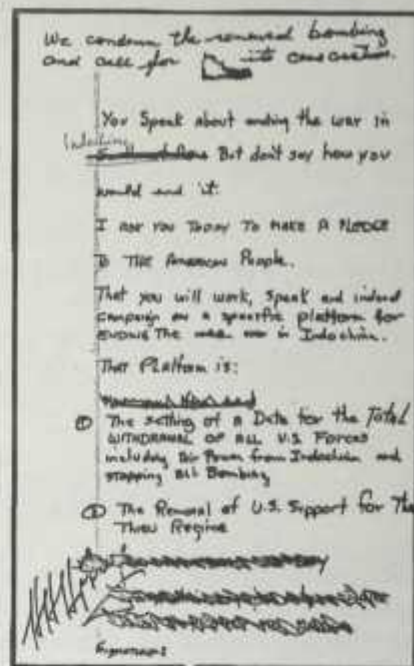 We condemn the renewed bombing
and call for its cessation.
You Speak about ending the war in
Indochina
But don't say how you
would end it.
I ask you Today To make A Pledge
To The American People.
That you will work, Speak and indeed
campaign on a specific platform for
ending The war in Indochina.
That Platform is:
① The setting of a Date for the Total
WITHDRAWAL OF ALL U.S. Forces
including Air Power from Indochina and
stopping all Bombing
② The Removal of U.S. Support for The
Thieu Regime
Signatures